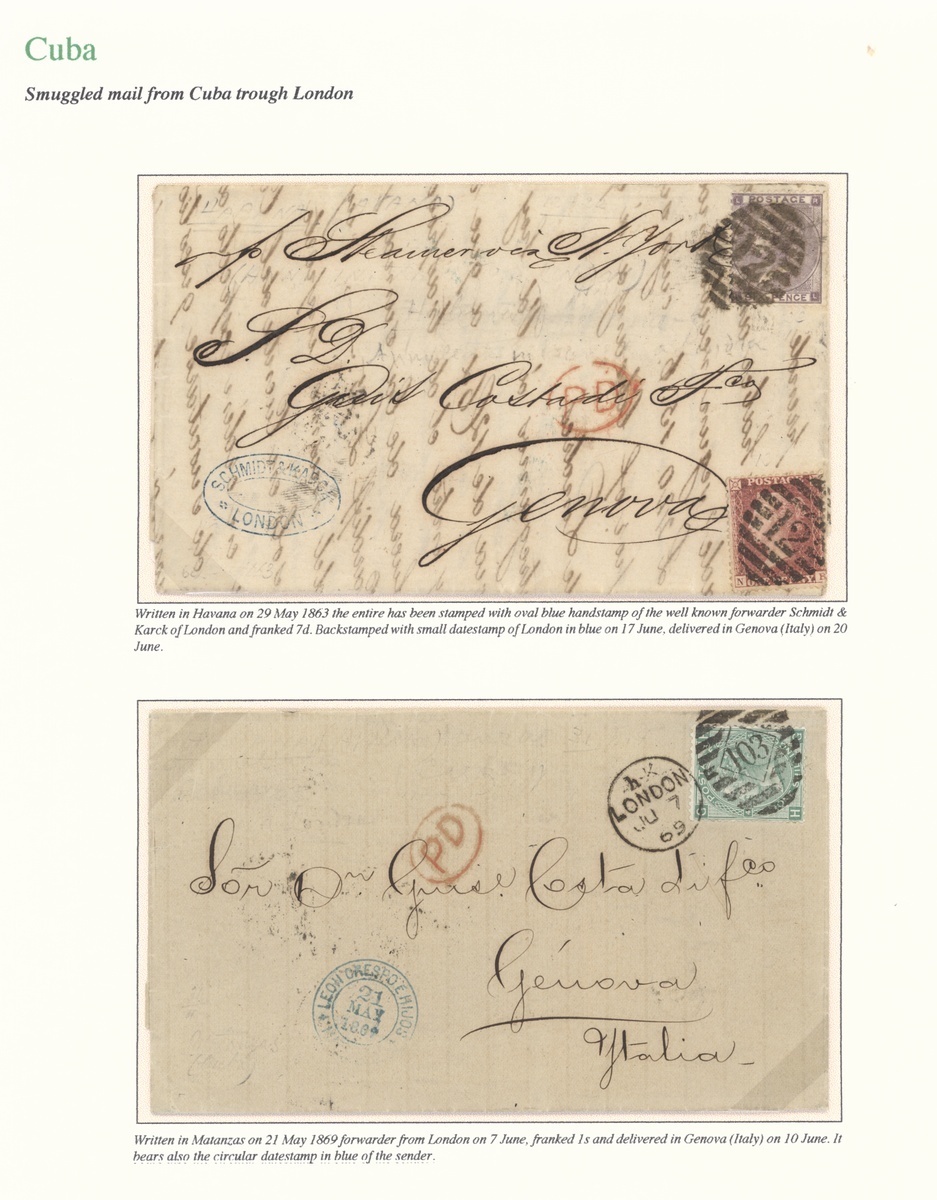 Cuba
Smuggled mail from Cuba trough London
POSTAGE
p Steamer via N. York
12
PENCE L
S. D.
Costa di Fco
PD
SCHMIDT & KARCK
LONDON
Genova
POSTAGE
12
N
Written in Havana on 29 May 1863 the entire has been stamped with oval blue handstamp of the well known forwarder Schmidt &
Karck of London and franked 7d. Backstamped with small datestamp of London in blue on 17 June, delivered in Genova (Italy) on 20
June.
103
LONDON
JU 7
69
H
PD
Sōr Dn Guise Costa di fco
LEON CRESPO E HIJOS
21
MAY
Génova
Ytalia
Written in Matanzas on 21 May 1869 forwarder from London on 7 June, franked 1s and delivered in Genova (Italy) on 10 June. It
bears also the circular datestamp in blue of the sender.